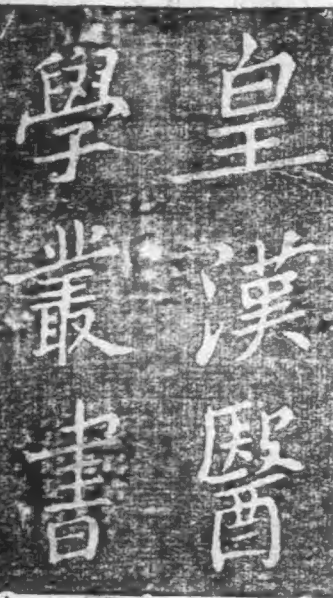 皇漢醫
學叢書